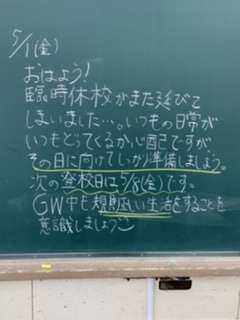 5/1(金)
おはよう!
臨時休校がまた延びて
しまいました…。いつもの日常が
いつもどってくるか心配ですが、
その日に向けてしっかり準備しましょう。
次の登校日は5/8(金)です。
GW中も規則正しい生活をすることを
意識しましょう